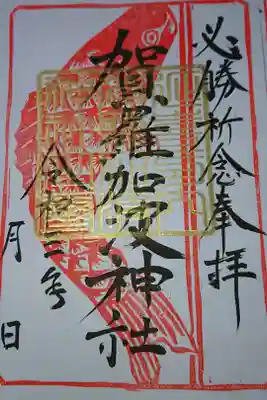 必勝祈念奉拝
賀羅加波神社
令和三年
月日